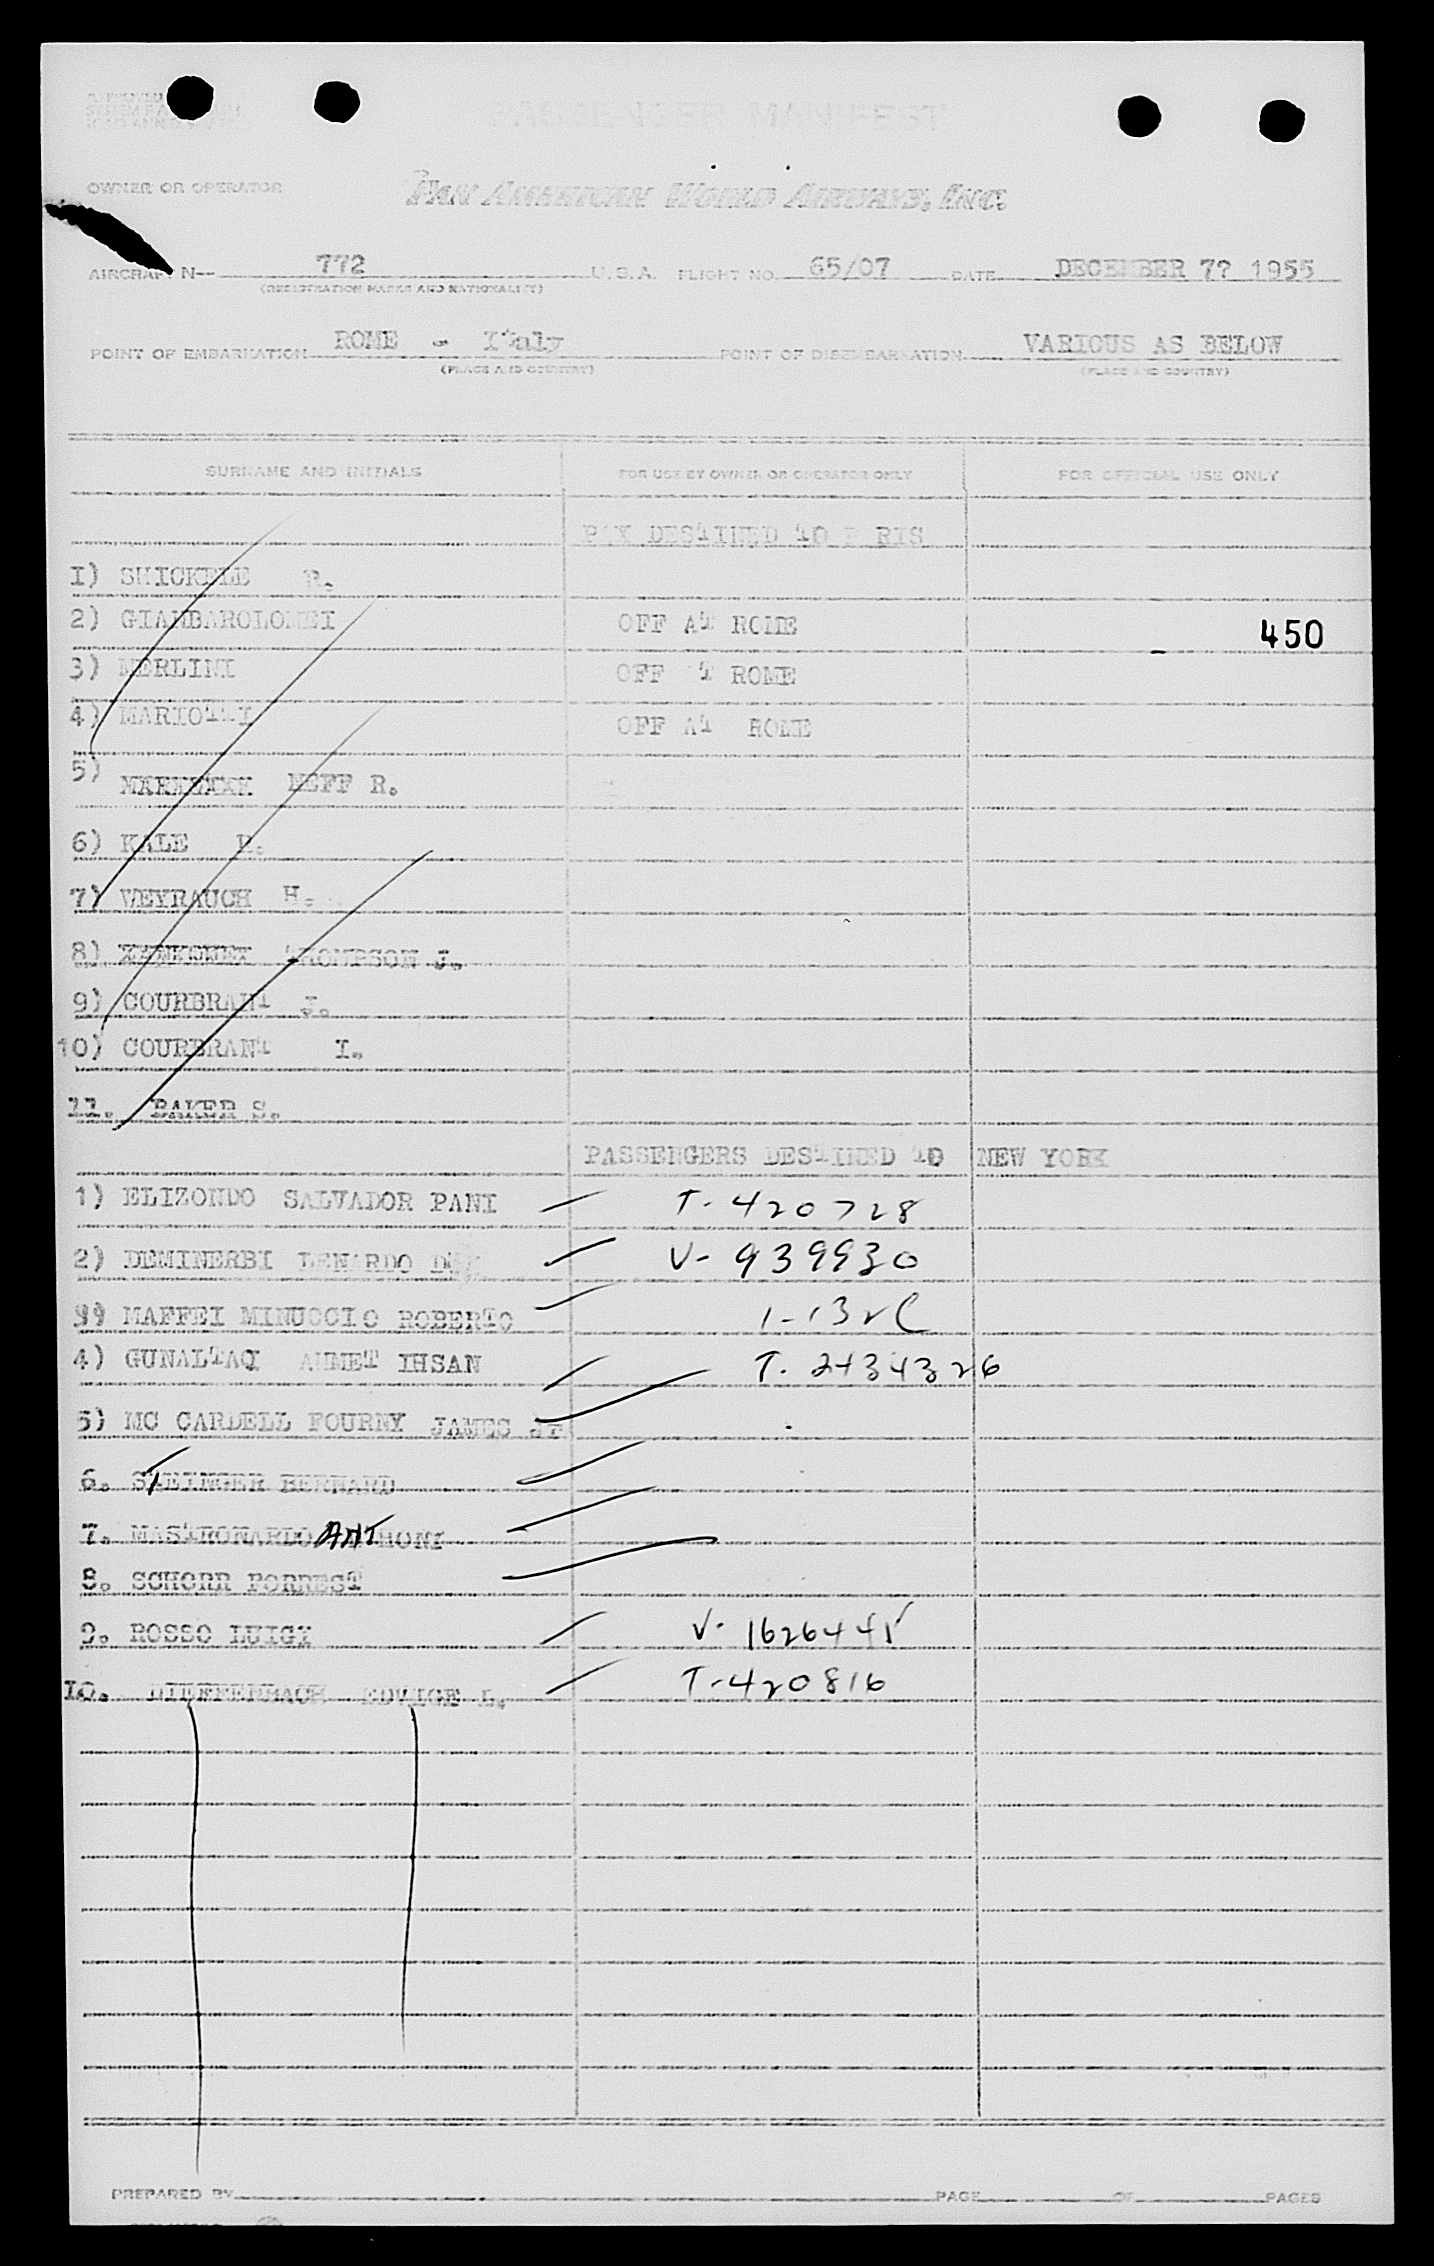 PASSENGER MANIFEST
OWNER OR OPERATOR PAN AMERICAN WORLD AIRWAYS, INC.
AIRCRAFT N-- 772 U.S.A. FLIGHT NO. 65/07 DATE DECEMBER 7? 1955
(REGISTRATION MARKS AND NATIONALITY)
POINT OF EMBARKATION ROME - Italy POINT OF DISEMBARKATION VARIOUS AS BELOW
(PLACE AND COUNTRY) (PLACE AND COUNTRY)
SURNAME AND INITIALS FOR USE BY OWNER OR OPERATOR ONLY FOR OFFICIAL USE ONLY
PAX DESTINED TO PARIS
1) SHICKELE R.
2) GIAMBAROLOMEI OFF AT ROME 450
3) MERLINI OFF AT ROME
4) MARIOTTI OFF AT ROME
5) NEFF R.
6) KALE
7) WEYRAUCH H.
8) THOMPSON J.
9) COURBRANT J.
10) COURBRANT I.
11. BAKER S.
PASSENGERS DESTINED TO NEW YORK
1) ELIZONDO SALVADOR PANI T-420728
2) DEMINERBI LENARDO V-939930
MAFFEI MINUCCIO ROBERTO 1-132C
4) GUNALTAQ AHMET IHSAN T. 2434326
5) MC CARDELL FOURNY JAMES JR
6. STEINGER BERNARD
7. MASTRONARDO ANTHONY
8. SCHORR FORREST
9. ROSSO LUIGI V-1626445
10. DIEFFENBACH EDVIGE L. T-420816
PREPARED BY PAGE OF PAGES